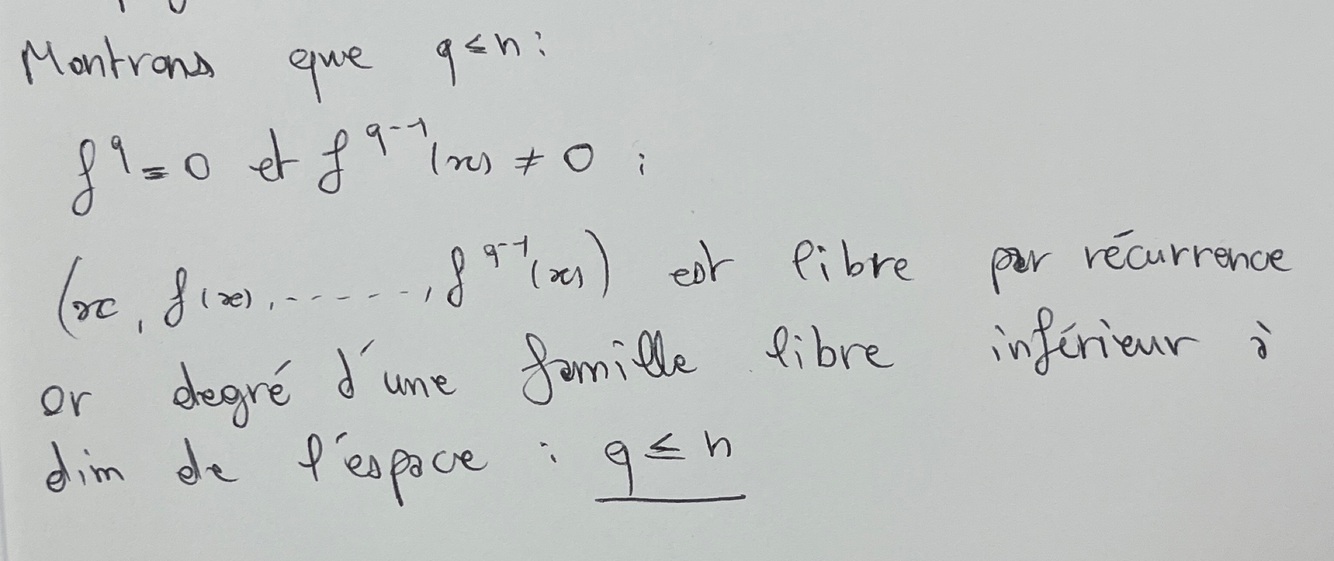 Montrons que q ≤ n :
f^q = 0 et f^{q-1}(x) ≠ 0 ;
(x, f(x), ------, f^{q-1}(x)) est libre par récurrence
or degré d'une famille libre inférieur à
dim de l'espace : q ≤ n